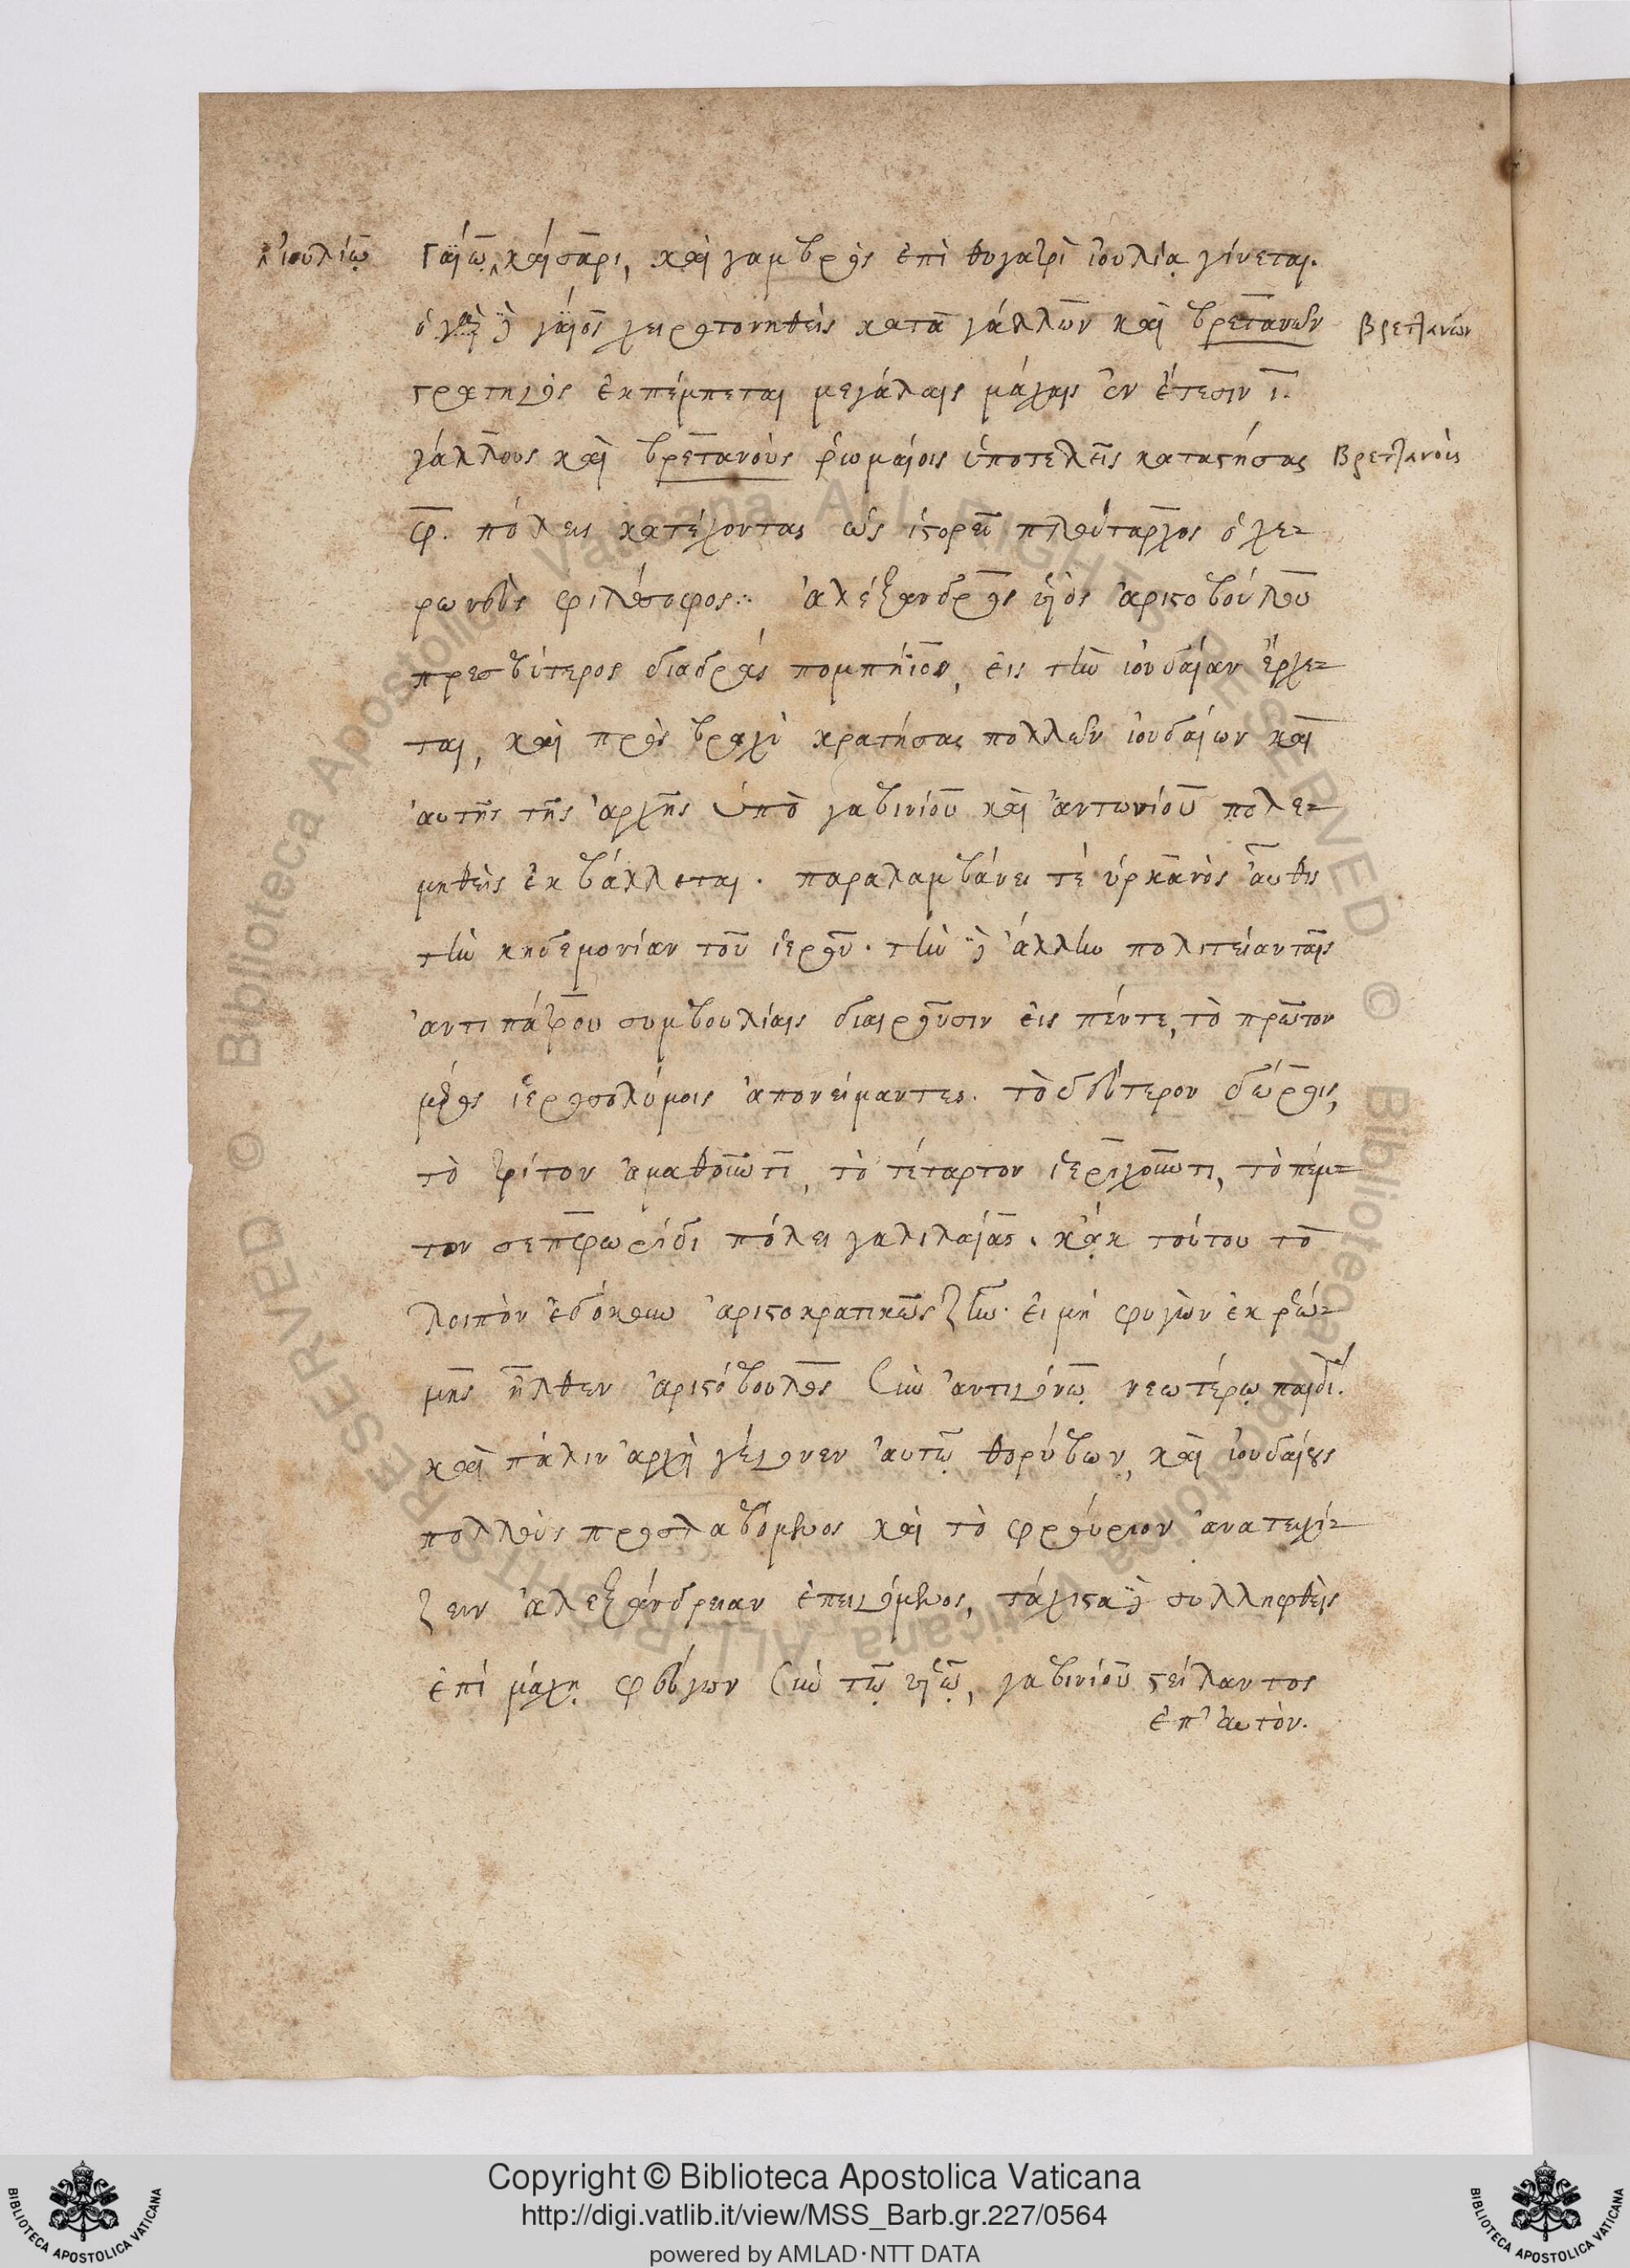 ἰουλίῳ
Γαΐῳ καίσαρι, καὶ γαμβρὸς ἐπὶ θυγατρὶ ἰουλίᾳ γίνεται.
ὁ δὲ γάϊος χειροτονηθεὶς κατὰ γάλλων καὶ βρετανῶν
βρετλανῶν
στρατηγὸς ἐκπέμπεται μεγάλαις μάχαις ἐν ἔτεσιν ι.
γάλλους καὶ βρετανοὺς ῥωμαίοις ὑποτελεῖς καταστήσας
βρετλανοὺς
φ. πόλεις κατέχοντας ὡς ἱστορεῖ πλούταρχος ὁ χε-
ρωνεὺς φιλόσοφος: ἀλέξανδρος υἱὸς ἀριστοβούλου
πρεσβύτερος διαδρὰς πομπήϊον, εἰς τὴν ἰουδαίαν ἔρχε-
ται, καὶ πρὸς βραχὺ κρατήσας πολλῶν ἰουδαίων καὶ
αὐτῆς τῆς ἀρχῆς ὑπὸ γαβινίου καὶ ἀντωνίου πολε-
μηθεὶς ἐκβάλλεται. παραλαμβάνει τὲ ὑρκανὸς αὖθις
τὴν κηδεμονίαν τοῦ ἱεροῦ. τὴν δὲ ἄλλην πολιτείαν ταῖς
ἀντιπάτρου συμβουλίαις διαιροῦσιν εἰς πέντε, τὸ πρῶτον
μέρος ἱεροσολύμοις ἀπονείμαντες. τὸ δεύτερον δώροις,
τὸ τρίτον ἀμαθοῦντι, τὸ τέταρτον ἱεριχοῦντι, τὸ πέμ-
τον σεπφωρίδι πόλει γαλιλαίας. κἀκ τούτου τὸ
λοιπὸν ἐδόκουν ἀριστοκρατικῶς ζῆν. εἰ μὴ φυγὼν ἐκ ῥώ-
μης ἦλθεν ἀριστόβουλος σὺν ἀντιγόνῳ νεωτέρῳ παιδί.
καὶ πάλιν ἀρχὴ γέγονεν αὐτῷ θορύβων, καὶ ἰουδαίους
πολλοὺς προσλαβόμενος καὶ τὸ φρούριον ἀνατειχί-
ζειν ἀλεξάνδρειαν ἐπειγόμενος, τάχιστα δὲ συλληφθεὶς
ἐπὶ μάχῃ φεύγων σὺν τῷ υἱῷ, γαβινίου στείλαντος
ἐπ' αὐτὸν.
Copyright © Biblioteca Apostolica Vaticana
http://digi.vatlib.it/view/MSS_Barb.gr.227/0564
powered by AMLAD·NTT DATA
BIBLIOTECA APOSTOLICA VATICANA
BIBLIOTECA APOSTOLICA VATICANA
© Biblioteca Apostolica Vaticana ALL RIGHTS RESERVED
© Biblioteca Apostolica Vaticana ALL RIGHTS RESERVED